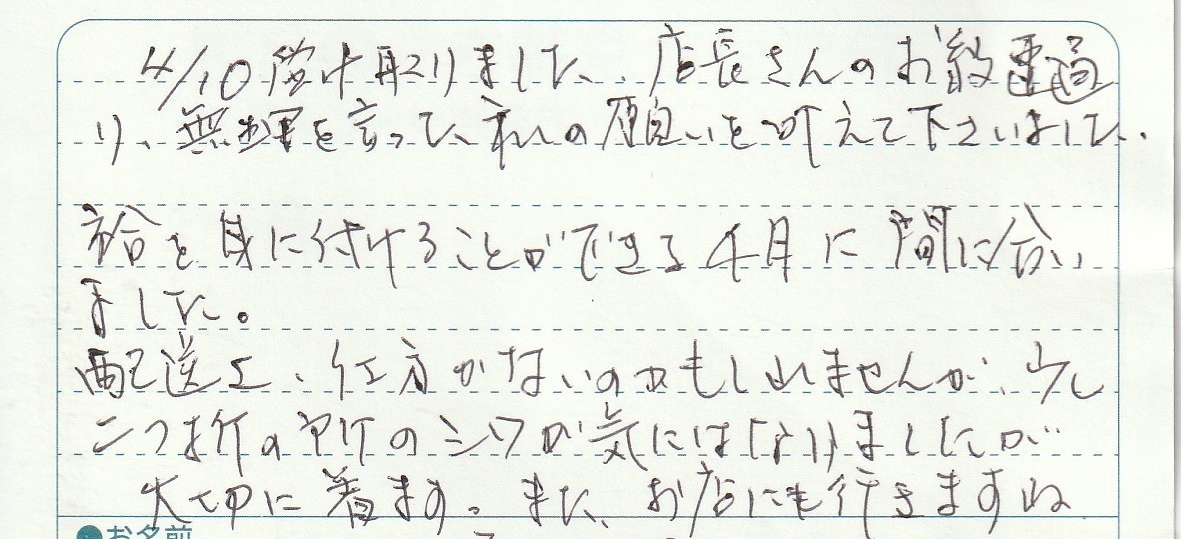 4/10 受け取りました。店長さんのお教通
り、無理を言って、私の願いを叶えて下さいました。
袷を身に付けることができる4月に間に合い
ました。
配送上、仕方がないのかもしれませんが、少し
二つ折の所のシワが気にはなりましたが
大切に着ます。また、お店にも行きますね
●お名前